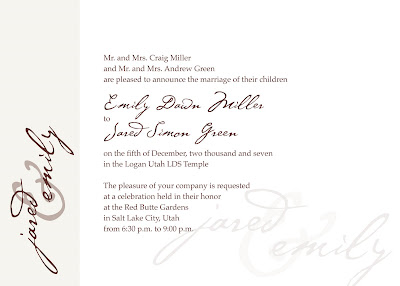 Mr. and Mrs. Craig Miller
and Mr. and Mrs. Andrew Green
are pleased to announce the marriage of their children
Emily Dawn Miller
to
Jared Simon Green
on the fifth of December, two thousand and seven
in the Logan Utah LDS Temple
The pleasure of your company is requested
at a celebration held in their honor
at the Red Butte Gardens
in Salt Lake City, Utah
from 6:30 p.m. to 9:00 p.m.
jared
&
emily
jared
&
emily